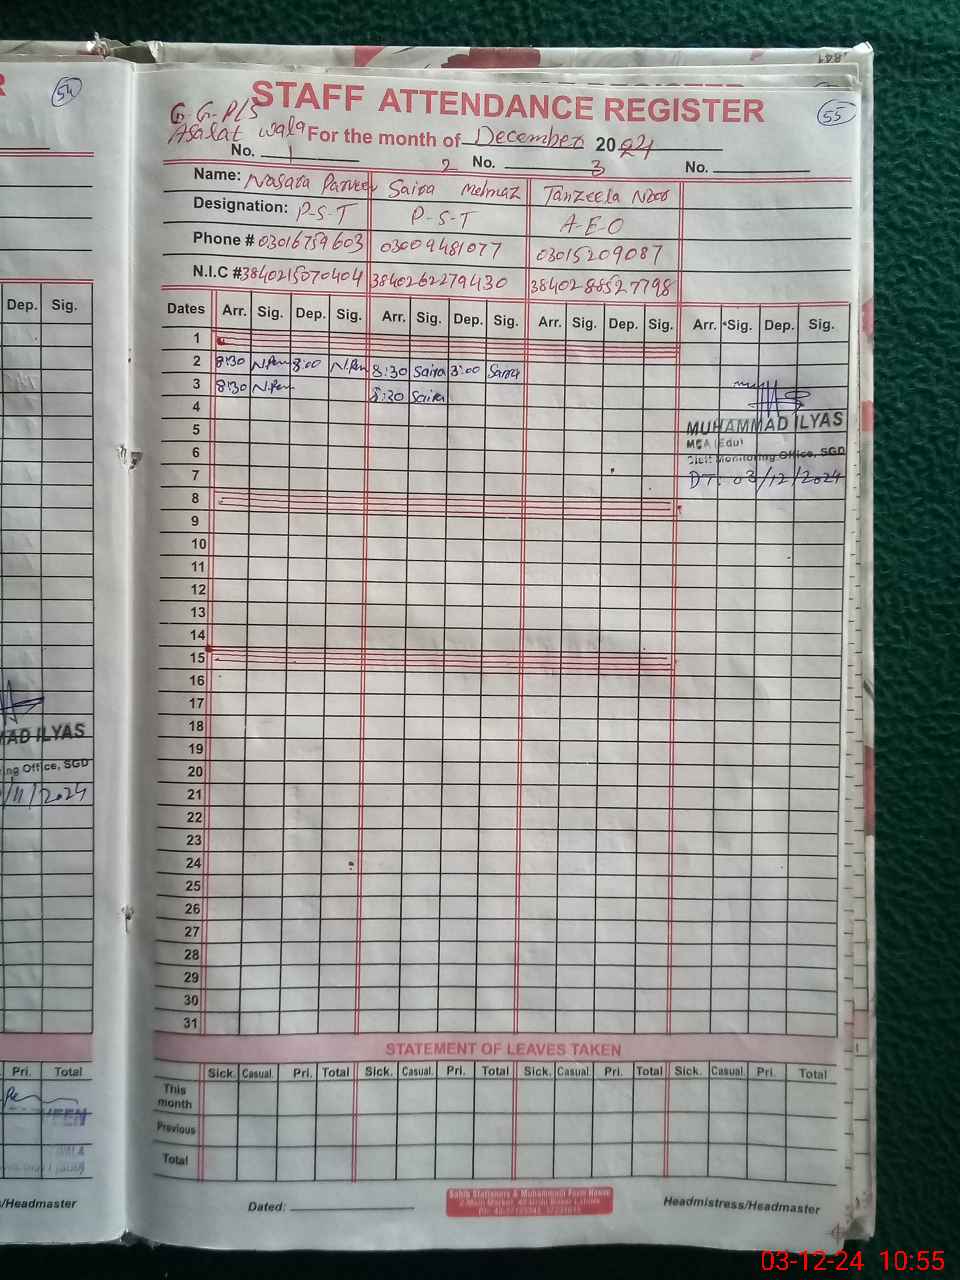 R
54
55
STAFF ATTENDANCE REGISTER
G.G.P/S
Asalat wala For the month of December 2024
No. 1 2 No. 3 No.
Name: Nasara Parveen Saira Mehnaz Tanzeela Noor
Designation: P-S-T P-S-T A-E-O
Phone # 03016759603 03009481077 03015209087
N.I.C # 3840215070404 3840262279430 3840288527798
Dep. Sig. Dates Arr. Sig. Dep. Sig. Arr. Sig. Dep. Sig. Arr. Sig. Dep. Sig. Arr. Sig. Dep. Sig.
1
2 8:30 N.Par 3:00 N.Par 8:30 Saira 3:00 Saira
3 8:30 N.Par 8:30 Saira
4
5 MUHAMMAD ILYAS
MEA (Edu)
6 Chief Monitoring Office, SGD
7 DT. 03/12/2024
8
9
10
11
12
13
14
15
16
17
18
MAD ILYAS
19
20
ing Office, SGD
21
/11/2024
22
23
24
25
26
27
28
29
30
31
STATEMENT OF LEAVES TAKEN
Pri. Total Sick. Casual. Pri. Total Sick. Casual. Pri. Total Sick. Casual. Pri. Total Sick. Casual. Pri. Total
This
month
VEEN
Previous
Total
s/Headmaster Dated: Headmistress/Headmaster
Sahib Stationers & Muhammadi Form House
03-12-24 10:55